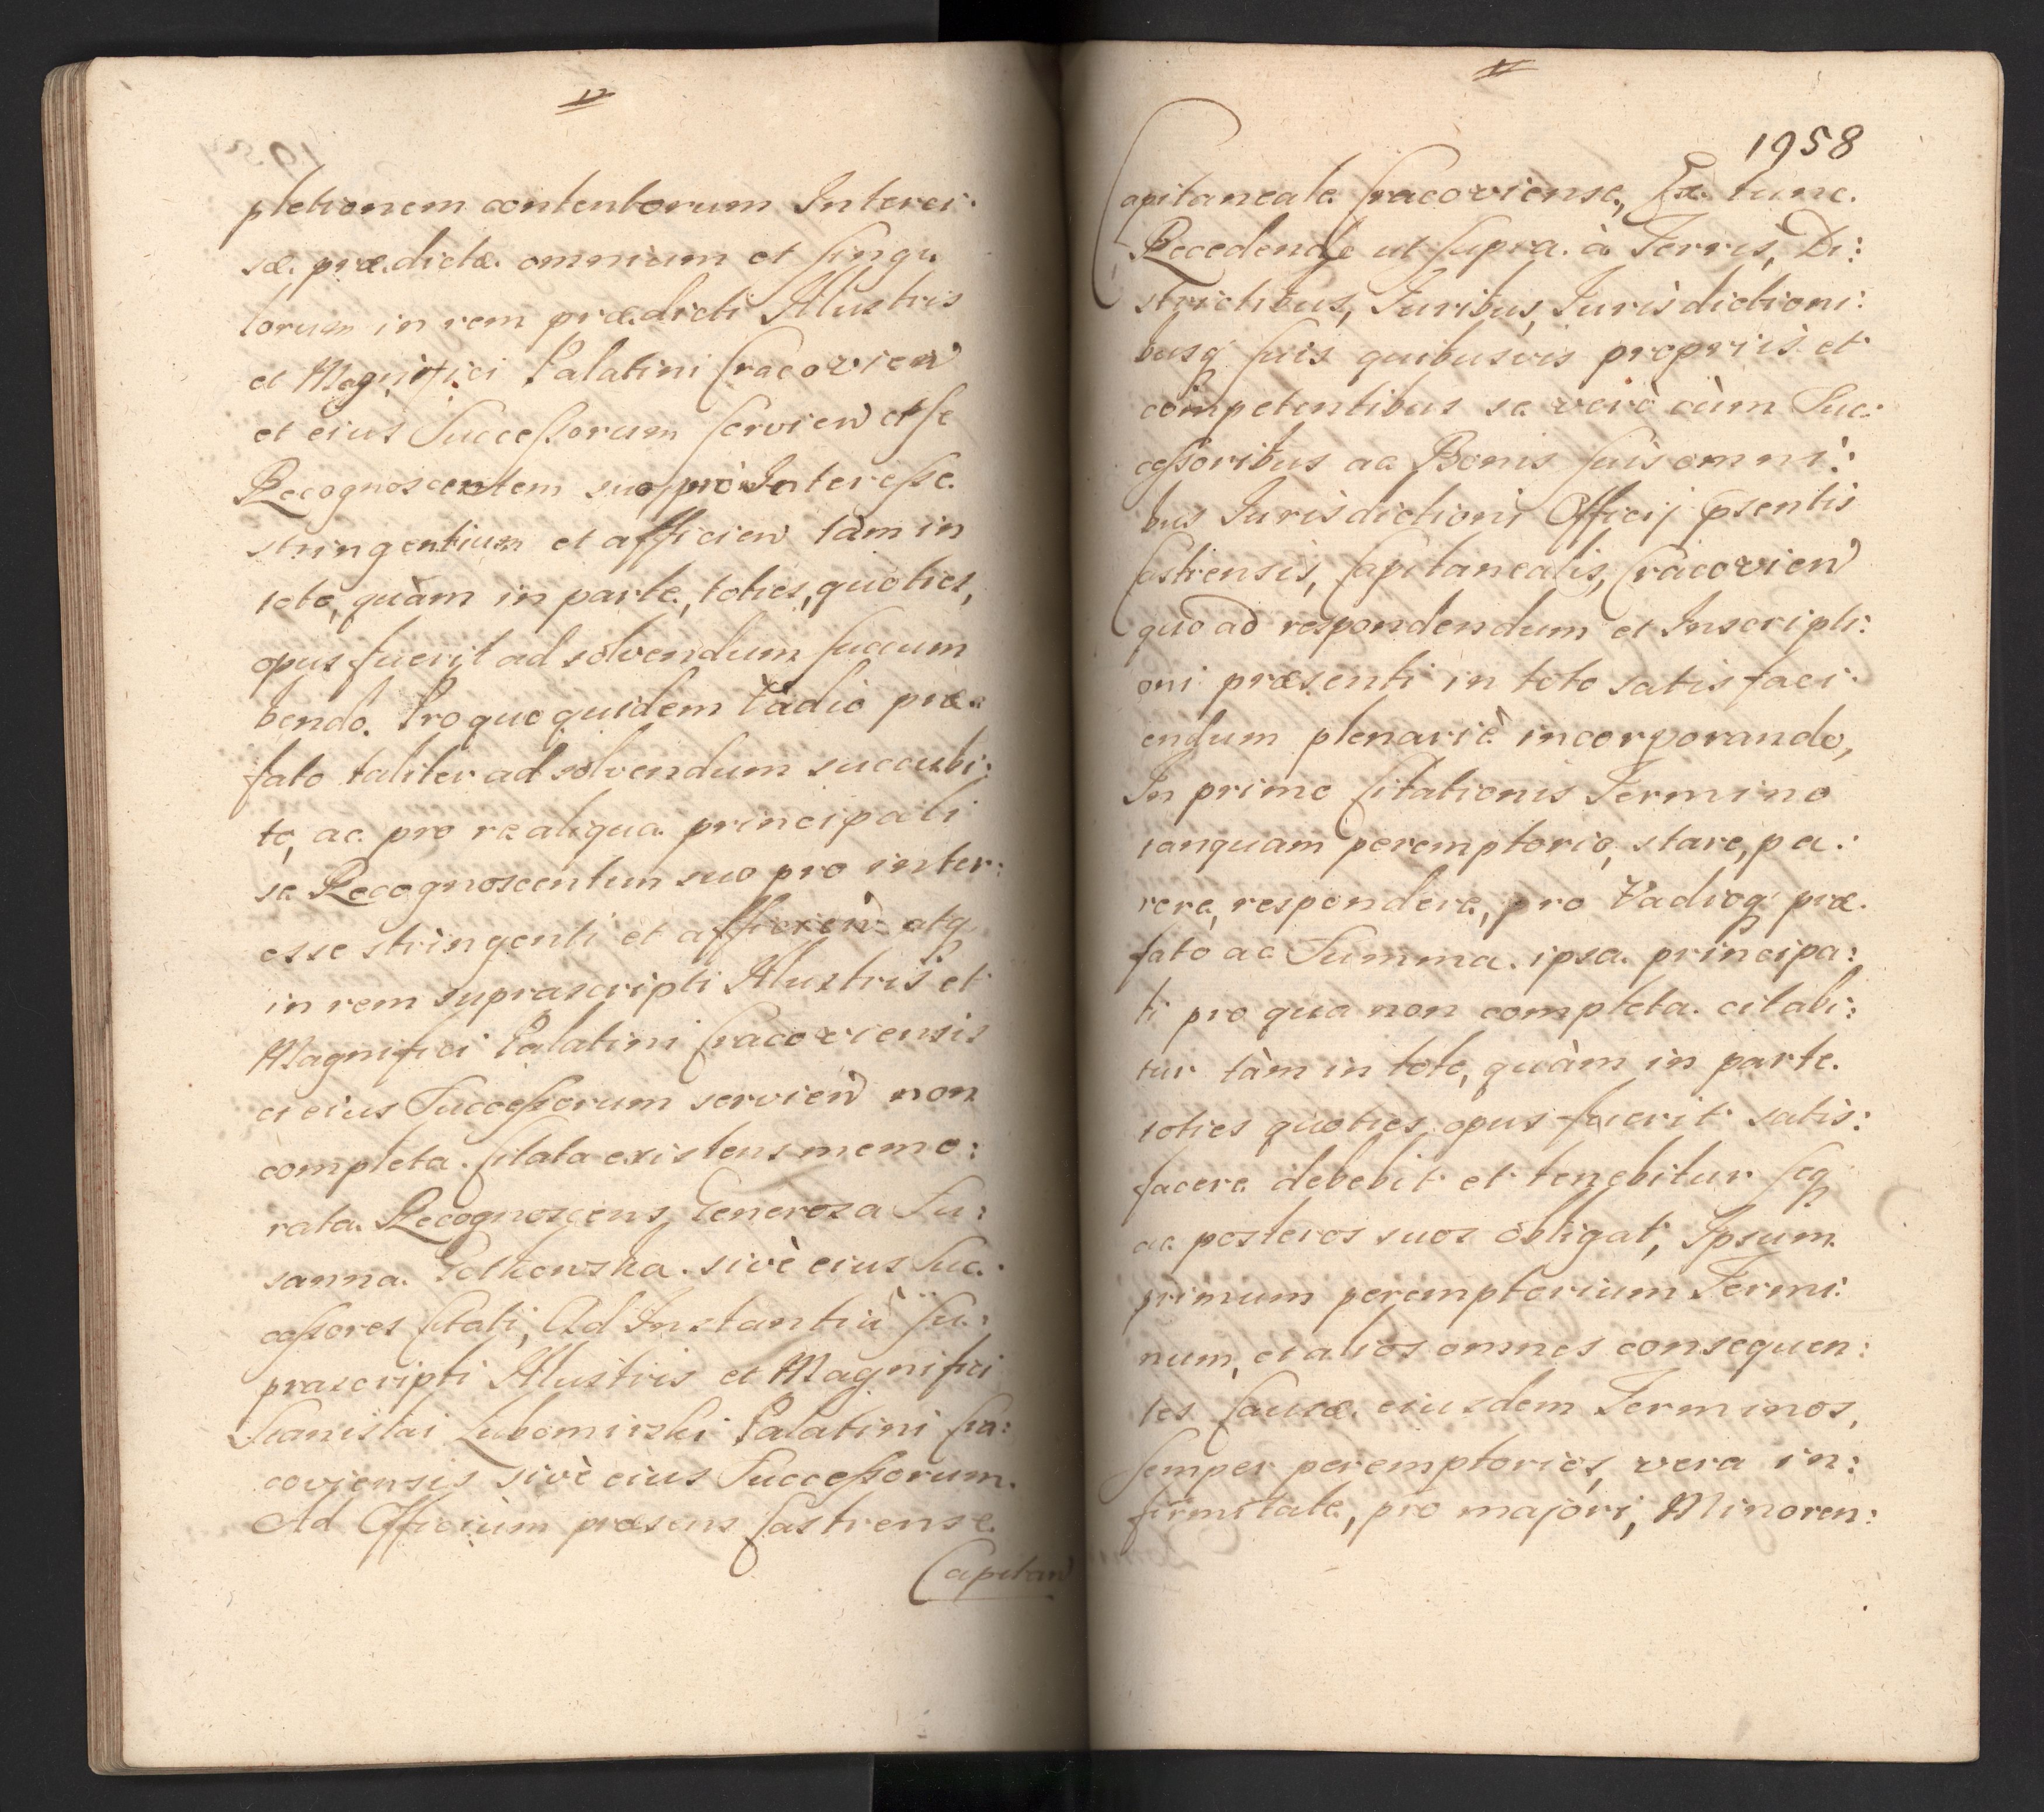 pletionem contentorum Interci:
sæ prædictæ omnium et singu
lorum in rem prædicti Illustris
et Magnifici Palatini Cracovien
et eius Successorum servien et se
Recognoscentem suo pro Interesse
stringentium et afficien tàm in
toto, quàm in parte, toties, quoties,
opus fuerit ad solvendum succum
bendo. Pro quo quidem Vadio præ
fato taliter ad solvendum succubi:
to, ac pro re aliqua principali
se Recognoscentem suo pro inter:
esse stringenti et afficien atq
in rem suprascripti Illustris et
Magnifici Palatini Cracoviensis
et eius Successorum servien non
completa Citata existens memo:
rata Recognoscens, Generosa Su:
sanna Golkowska sivè eius Suc:
cessores Citati, Ad Instantiã Su:
prascripti Illustris et Magnifici
Stanislai Lubomirski Palatini Cra:
coviensis sivè eius Successorum.
Ad Officium præsens Castrense
Capitan
1958
Capitaneale Cracoviense, Ex tunc
Recedendo ut supra à Terris, Di:
strictibus, Iuribus, Iurisdictioni:
busq suis quibusvis propriis et
competentibus se verò cùm Suc:
cessoribus ac Bonis suis omni:
bus Iurisdictioni Officij pSentis
Castrensis, Capitanealis, Cracovien
quo ad respondendum et Inscripti:
oni præsenti in toto satisfaci:
endum plenariè incorporando,
In primo Citationis Termino
tanquam peremptorio, stare, pa:
rere, respondere, pro Vadioq præ
fato ac Summa ipsa principa:
li pro qua non completa citabi:
tur tàm in toto, quàm in parte
toties quoties opus fuerit satis:
facere debebit et tenebitur seq
ac posteros suos obligat, Ipsum
primum peremptorium Termi:
num, et alios omnes consequen:
tes Causæ eiusdem Terminos,
semper peremptorios, vera in:
firmitate, pro majori, Minoren: